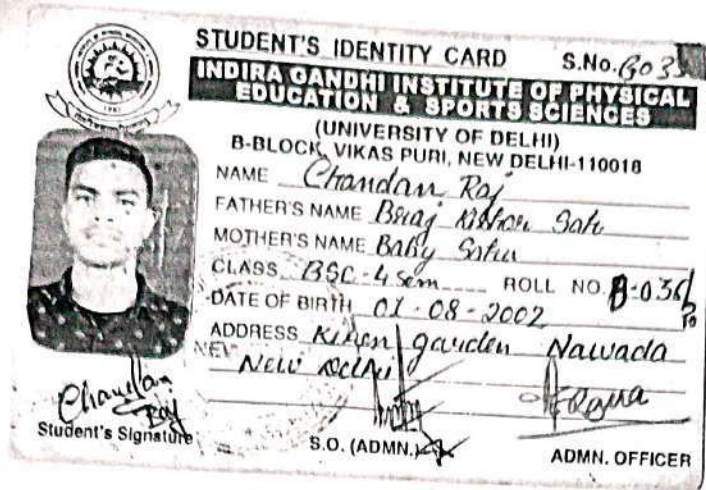 STUDENT'S IDENTITY CARD S.No.
INDIRA GANDHI INSTITUTE OF PHYSICAL
EDUCATION & SPORTS SCIENCES
(UNIVERSITY OF DELHI)
B-BLOCK, VIKAS PURI, NEW DELHI-110018
NAME Chandan Raj
FATHER'S NAME Braj Kishor Sah
MOTHER'S NAME Baby
CLASS BSC-4 Sem ROLL NO.
DATE OF BIRTH 01-08-2002
ADDRESS Kiran garden Nawada
New Delhi
Chandan
Raj
Student's Signature
S.O. (ADMN.)
ADMN. OFFICER